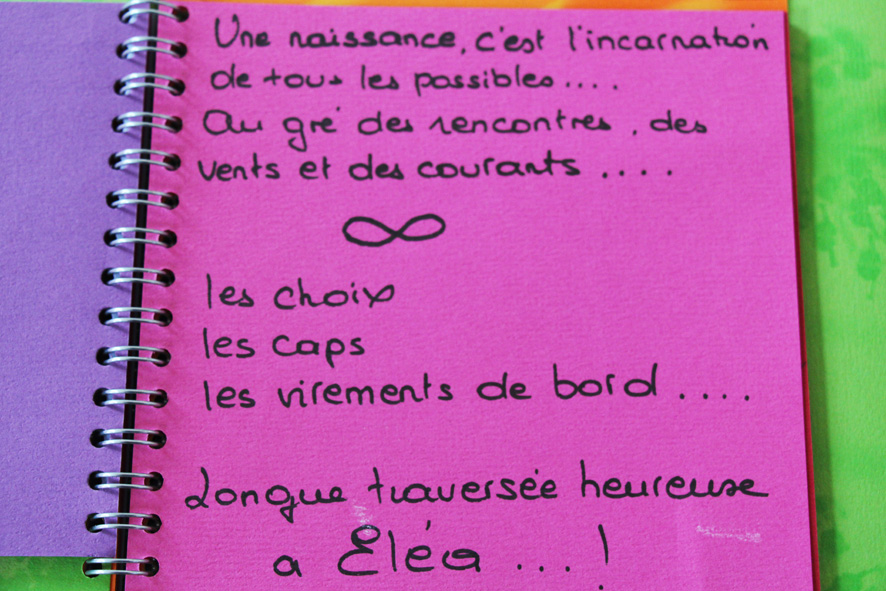 Une naissance, c'est l'incarnation
de tous les possibles....
Au gré des rencontres, des
vents et des courants....
∞
les choix
les caps
les virements de bord....
Longue traversée heureuse
a Eléa...!